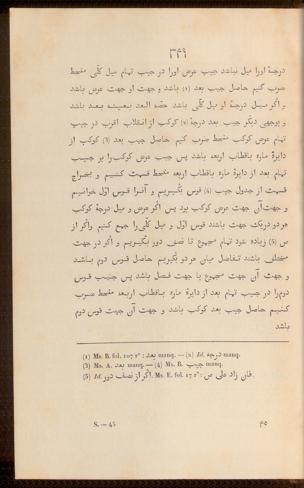 ٣٤٩
درجهٔ اورا میل نباشد جیب عرض اورا در جیب تمام میل کلّی منحط
ضرب کنیم حاصل جیب بعد (١) باشد و جهت او جهت عرض باشد
و اگر میل درجهٔ او میل کلّی باشد حصّه البعد بعینه بعد باشد
و بوجهی دیگر جیب بعد درجهٔ (٢) کوکب از انقلاب اقرب در جیب
تمام عرض کوکب منحط ضرب کنیم حاصل جیب بعد (٣) کوکب از
دایرهٔ ماره باقطاب اربعه باشد پس جیب عرض کوکب را بر جیب
تمام بعد از دایرهٔ ماره باقطاب اربعه منحط قسمت کنیم و خارج
قسمت از جدول جیب (۴) قوس بگیریم و آنرا قوس اوّل خوانیم
و جهت آن جهت عرض کوکب بود پس اگر عرض و میل درجهٔ کوکب
هر دو در یک جهت باشند قوس اوّل و میل کلّی را جمع کنیم و اگر از
ص (٥) زیاده شود تمام مجموع تا نصف دور بگیریم و اگر در جهت
مختلف باشند تفاضل میان هر دو بگیریم حاصل قوس دوم باشد
و جهت آن جهت مجموع یا جهت فضل باشد پس جیب قوس
دوم را در جیب تمام بعد از دایرهٔ ماره باقطاب اربعه منحط ضرب
کنیم حاصل جیب بعد کوکب باشد و جهت آن جهت قوس دوم
باشد
(1) Ms. B. fol. 107 rº: بعد manq. — (2) Id. درجه manq.
(3) Ms. A. بعد manq. — (4) Ms. B. جیب manq.
(5) Id. اگر از نصف دور. Ms. E. fol. 17 rº: فان زاد علی ص.
S. — 45
۴٥